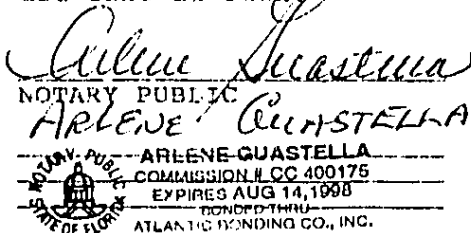 Arlene Guastella
NOTARY PUBLIC
ARLENE GUASTELLA
NOTARY PUBLIC
STATE OF FLORIDA
ARLENE GUASTELLA
COMMISSION # CC 400175
EXPIRES AUG 14,1998
BONDED THRU
ATLANTIC BONDING CO., INC.